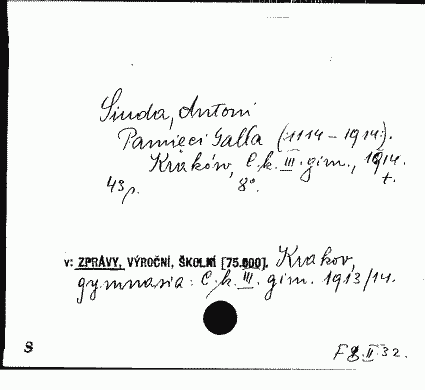 Sinda, Antoni
Pamięci Galla (:1114-1914:).
Kraków, C.k. III. gim., 1914.
43 p. 8°. t.
v: ZPRÁVY, VÝROČNÍ, ŠKOLNÍ [75.600]. Krakov,
gymnasia: C.k. III. gim. 1913/14.
S F g. II 32.